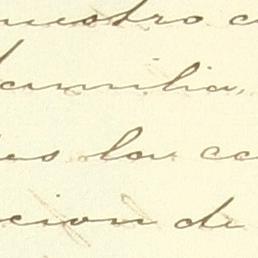 nuestro c
familia,
es la ca
cion de